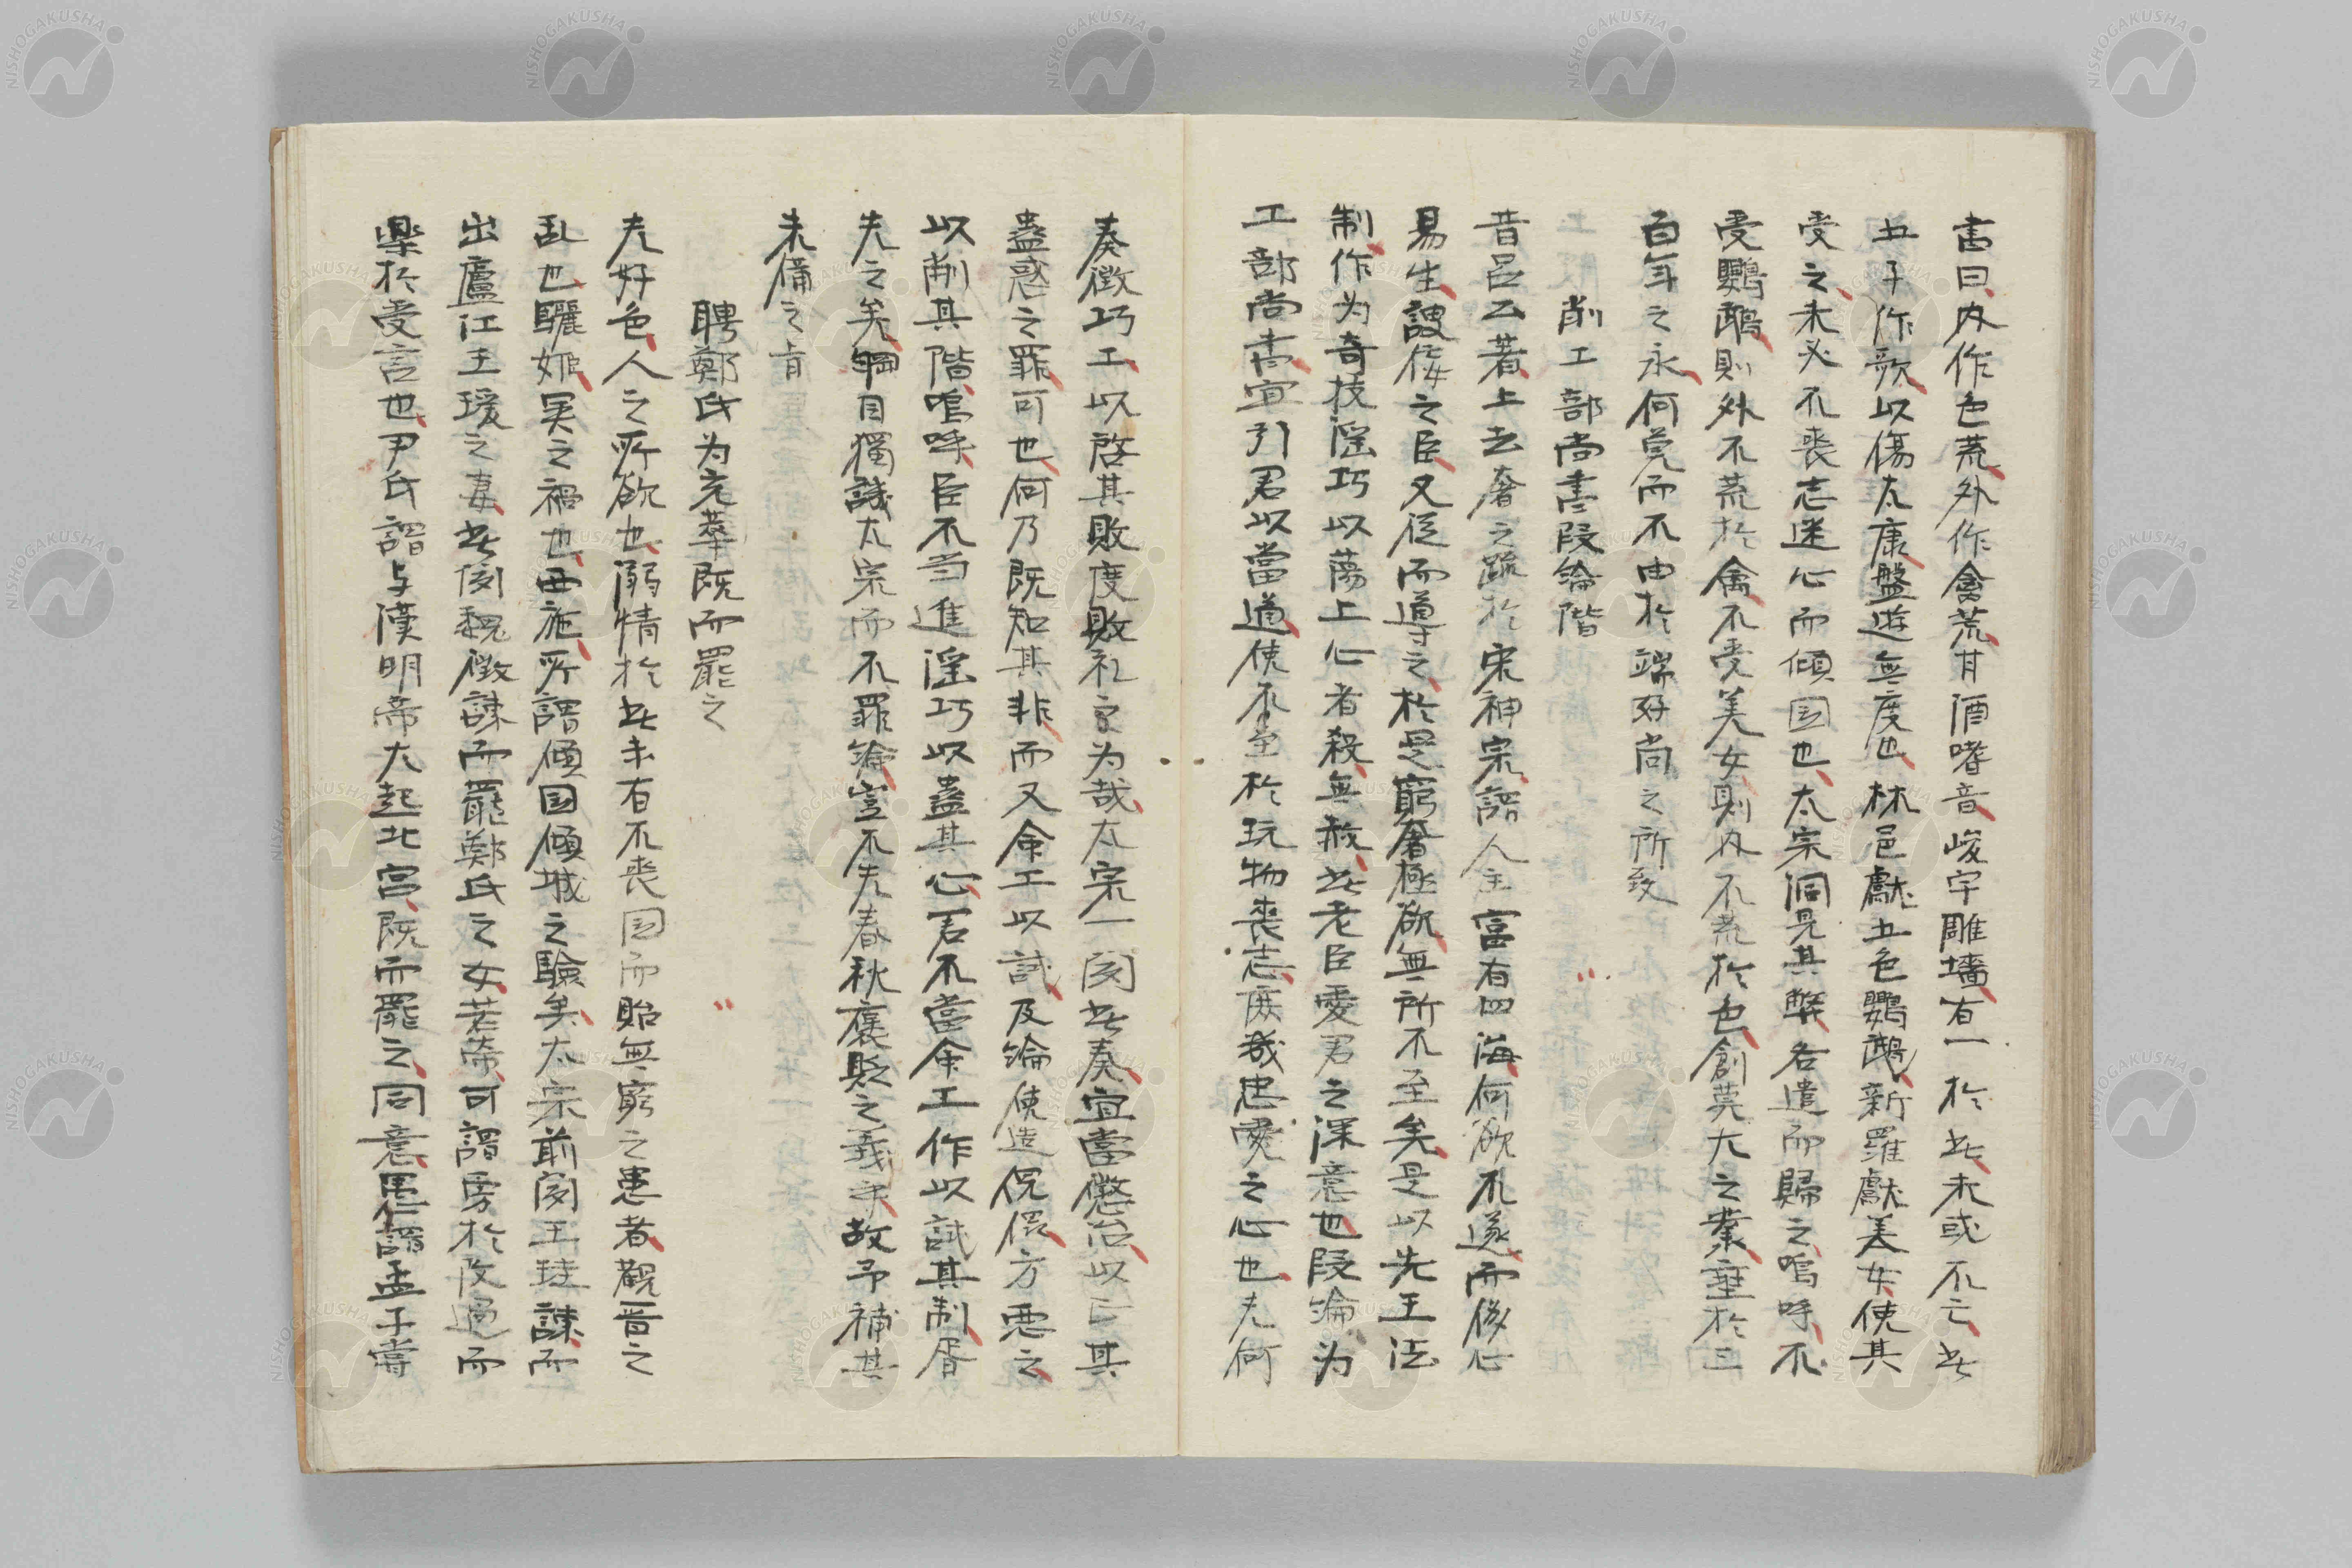 書曰内作色荒外作禽荒甘酒嗜音峻宇雕墻有一於此未或不亡此
五子作歌以傷太康盤遊無度也林邑獻五色鸚鵡新羅獻美女使其
受之未必不喪志迷心而傾国也太宗洞見其弊各遣而歸之嗚呼不
受鸚鵡則外不荒於禽不受美女則内不荒於色創莫大之業垂於三
百年之永何莫而不由於端好尚之所致
削工部尚書段綸階
昔呂公著上去奢之疏於宋神宗謂人主富有四海何欲不遂而侈心
易生諛佞之臣又從而導之於是窮奢極欲無所不至矣是以先王法
制作为奇技淫巧以蕩上心者殺無赦此老臣愛君之深意也段綸为
工部尚書宜引君以當道使不至於玩物喪志庶幾忠愛之心也夫何
奏徴巧工以啓其敗度敗礼之为哉太宗一閲此奏宜當懲治以正其
蠱惑之罪可也何乃既知其非而又命工以試及綸使造傀儡方悪之
以削其階嗚呼臣不当進淫巧以蠱其心君不當命工作以試其制胥
失之矣綱目獨譏太宗而不罪綸豈不失春秋褒貶之義乎故予補其
未備之旨
聘鄭氏为充華既而罷之
夫好色人之所欲也溺情於此未有不喪国而貽無窮之患者觀晋之
乱也驪姫呉之禍也西施所謂傾国傾城之驗矣太宗前閲王珪諌而
出廬江王瑗之妻此閲魏徴諌而罷鄭氏之女若帝可謂勇於改過而
楽於受言也尹氏謂与漢明帝大起北宮既而罷之同意愚謂孟子嘗